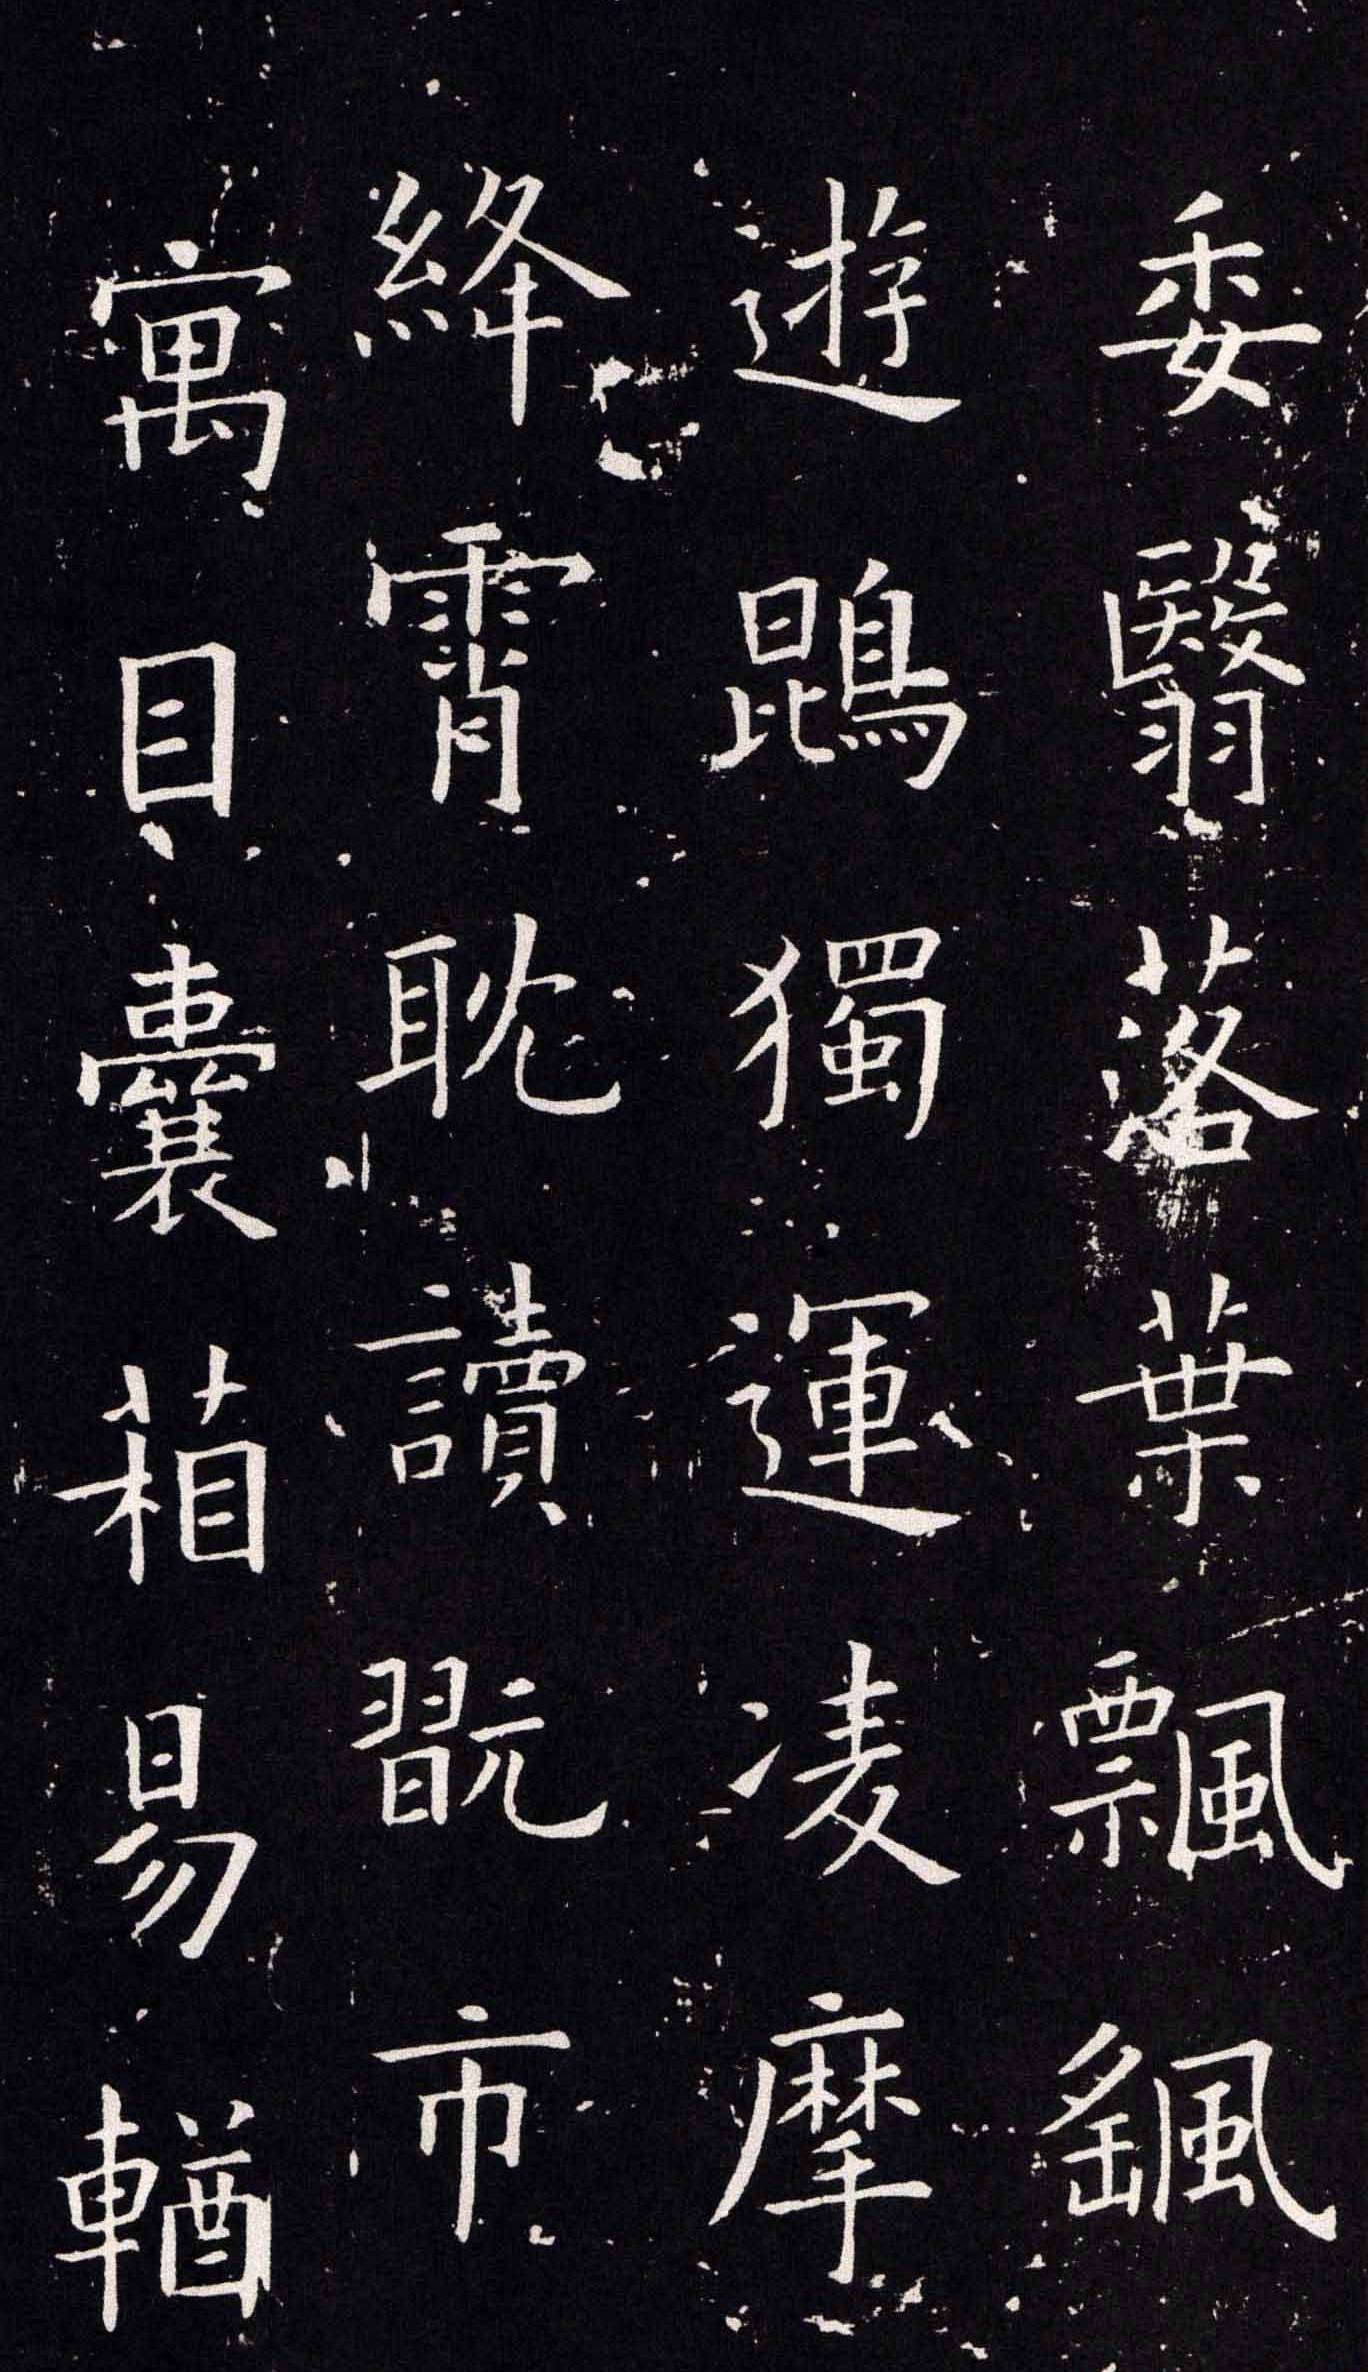 委翳落葉飄颻
遊鵾獨運淩摩
絳霄耽讀翫市
寓目囊葙易輶